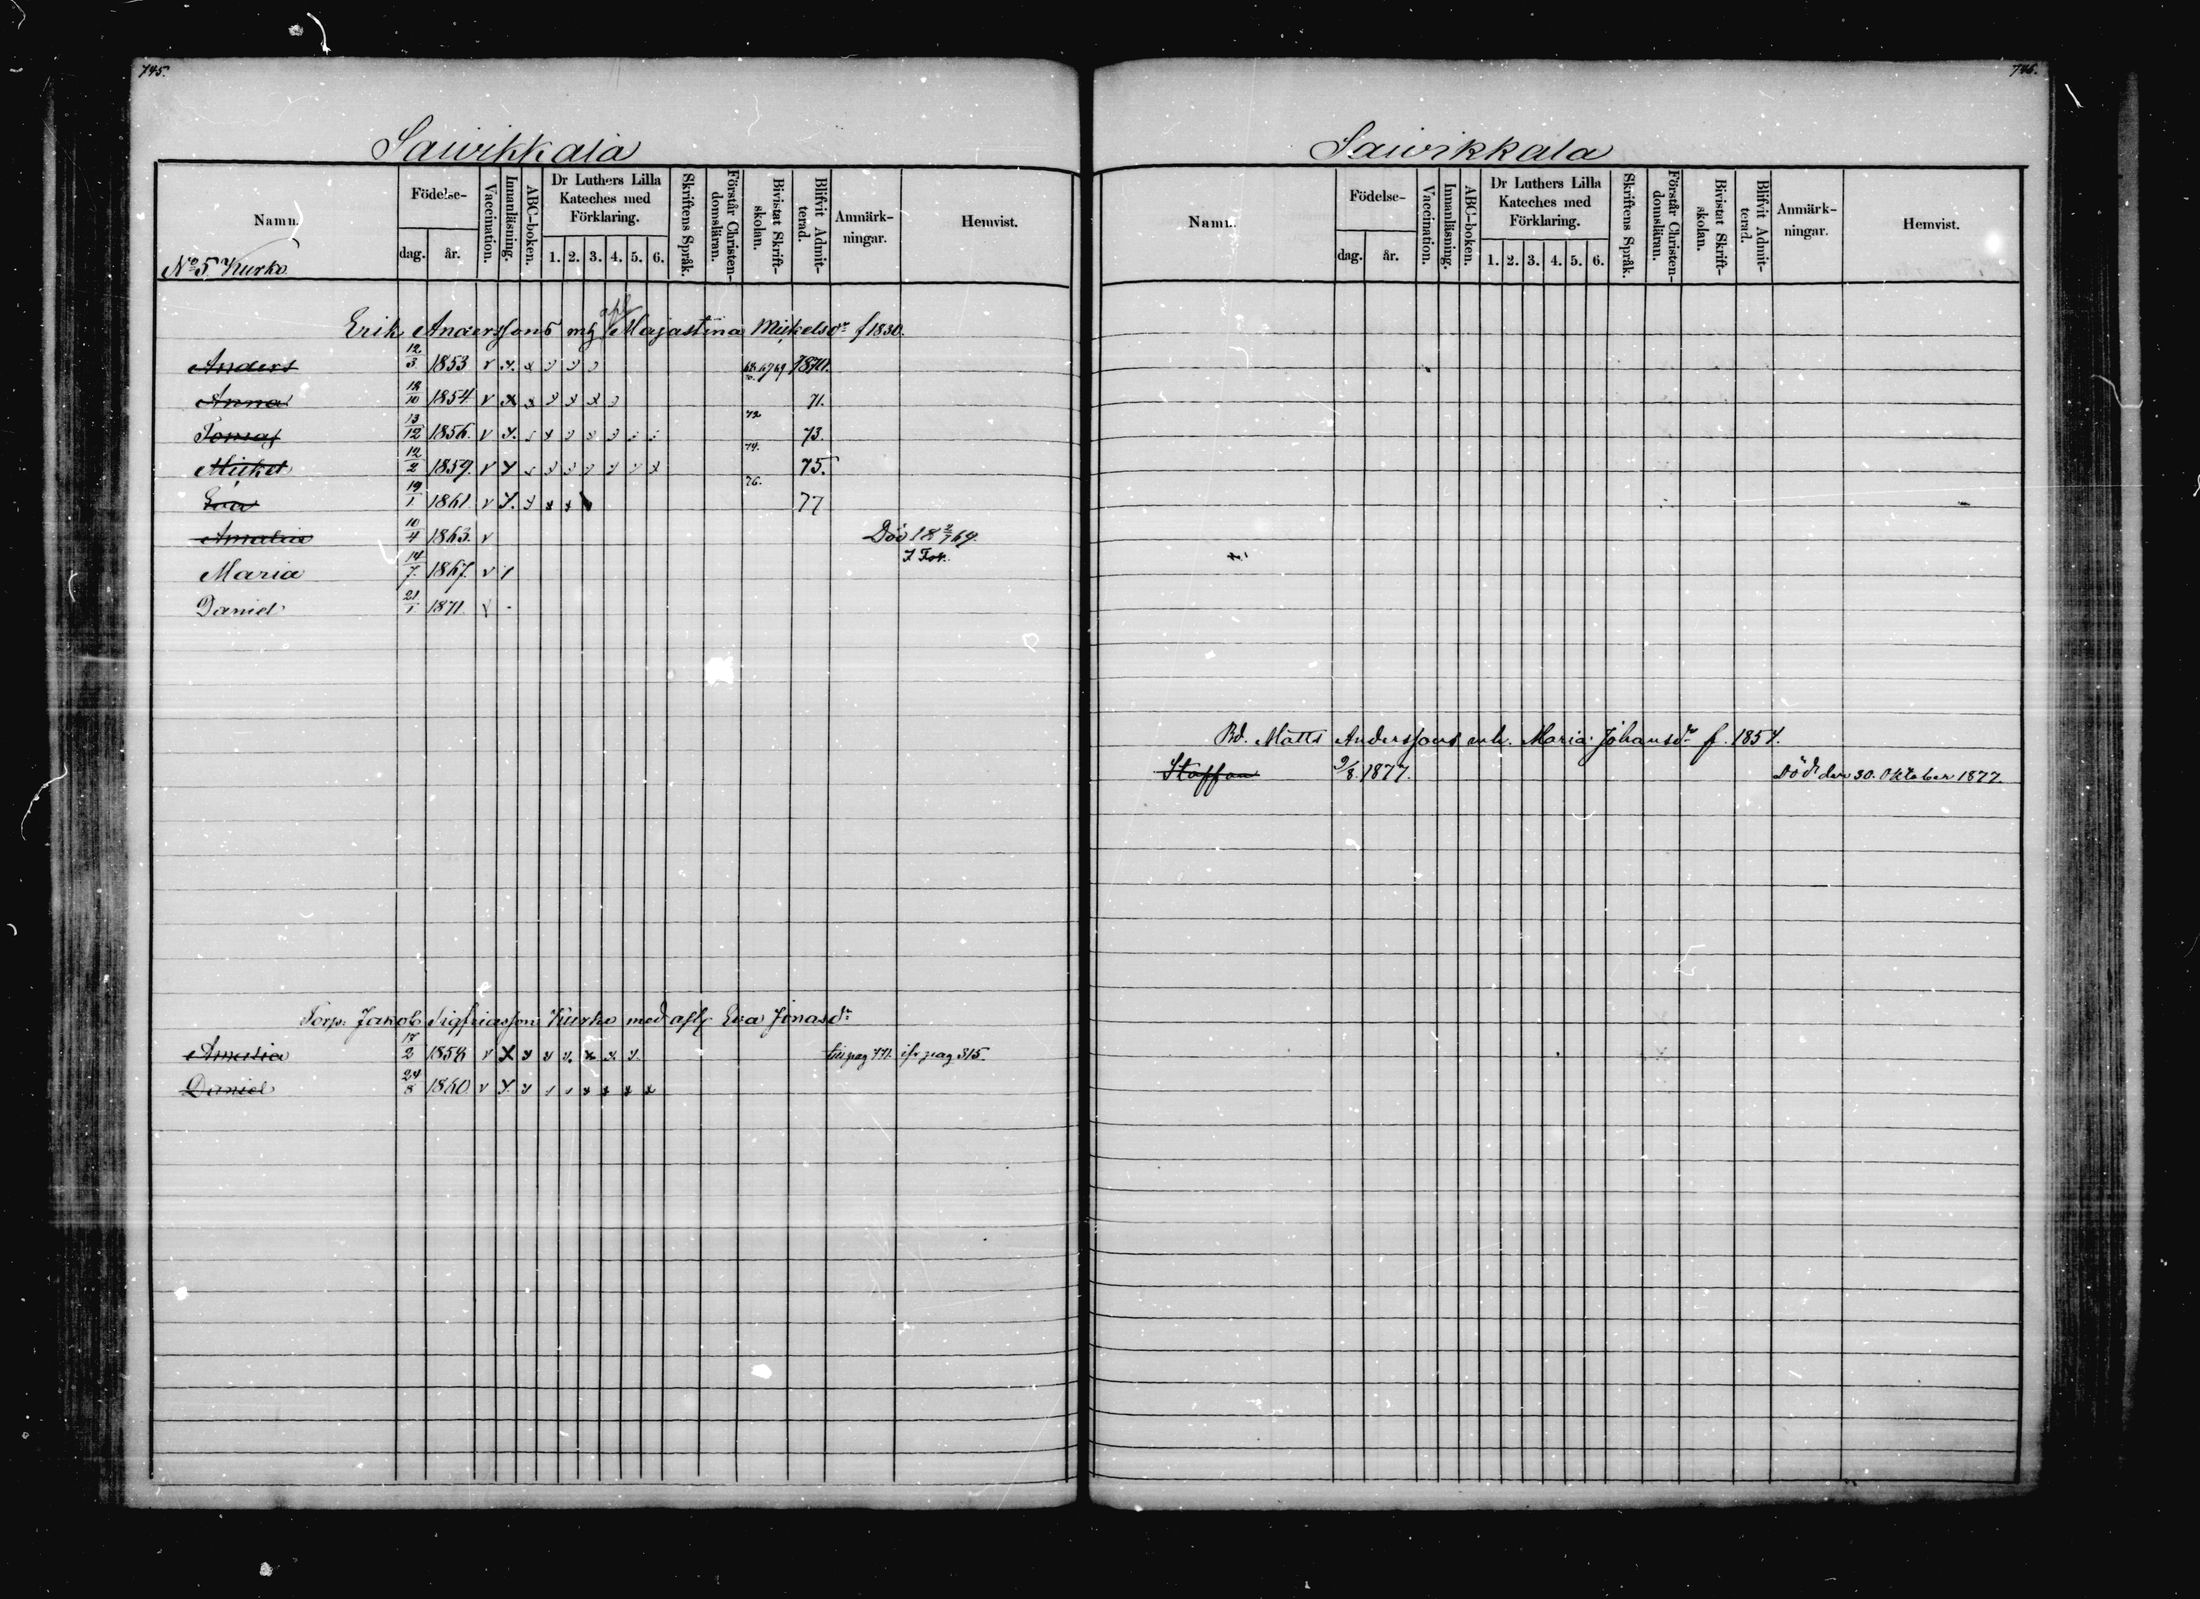 745.
Sawikkala
Namn.
Födelse-
dag.
år.
Vaccination.
Innanläsning.
ABC-boken.
Dr Luthers Lilla
Kateches med
Förklaring.
1. 2. 3. 4. 5. 6.
Skriftens Språk.
Förstår Christen-
domsläran.
Bivistat Skrift-
skolan.
Blifvit Admit-
terad.
Anmärk-
ningar.
Hemvist.
No 5 Kurko
afl
Erik Anderssons m h Majastina Mickelsdr f 1830.
Anders 12/3 1853 v 1870.
Anna 12/10 1854 v x 71.
Tomas 13/12 1856. v 72 73.
Mickel 12/2 1859. v 74. 75.
Eva 19/1 1861 v 76. 77
Amalia 10/4 1863. v
Maria 14/7. 1867. v
Daniel 21/1 1871. v
Torp. Jakob Sigfridsson Kurko med afl Eva Jonasdr
Amalia 17/2 1858 v x pag 315.
Daniel 24/8 1860. v
746.
Sawikkala
Namn.
Födelse-
dag.
år.
Vaccination.
Innanläsning.
ABC-boken.
Dr Luthers Lilla
Kateches med
Förklaring.
1. 2. 3. 4. 5. 6.
Skriftens Språk.
Förstår Christen-
domsläran.
Bivistat Skrift-
skolan.
Blifvit Admit-
terad.
Anmärk-
ningar.
Hemvist.
Bd. Matts Anderssons enk. Maria Johansdr f. 1854.
Staffan 9/8. 1877. Död den 30. Oktober 1877.